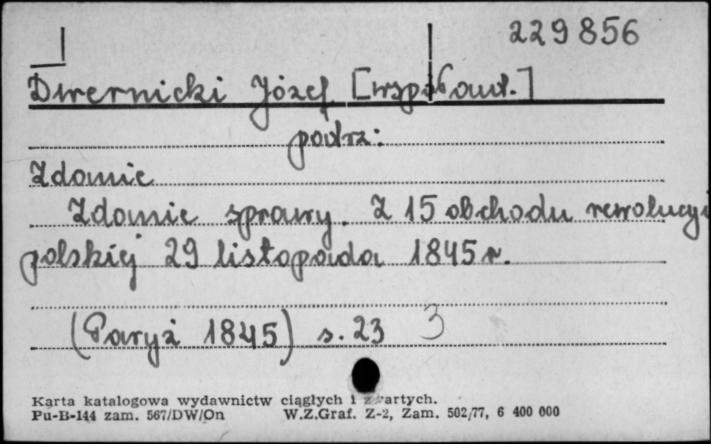 229856
Dwernicki Józef [współaut.]
podrz:
Zdanie
Zdanie sprawy. Z 15 obchodu rewolucyi
polskiej 29 listopada 1845 r.
(Paryż 1845) s. 23 3
Karta katalogowa wydawnictw ciągłych i zwartych.
Pu-B-144 zam. 567/DW/On W.Z.Graf. Z-2, Zam. 502/77, 6 400 000